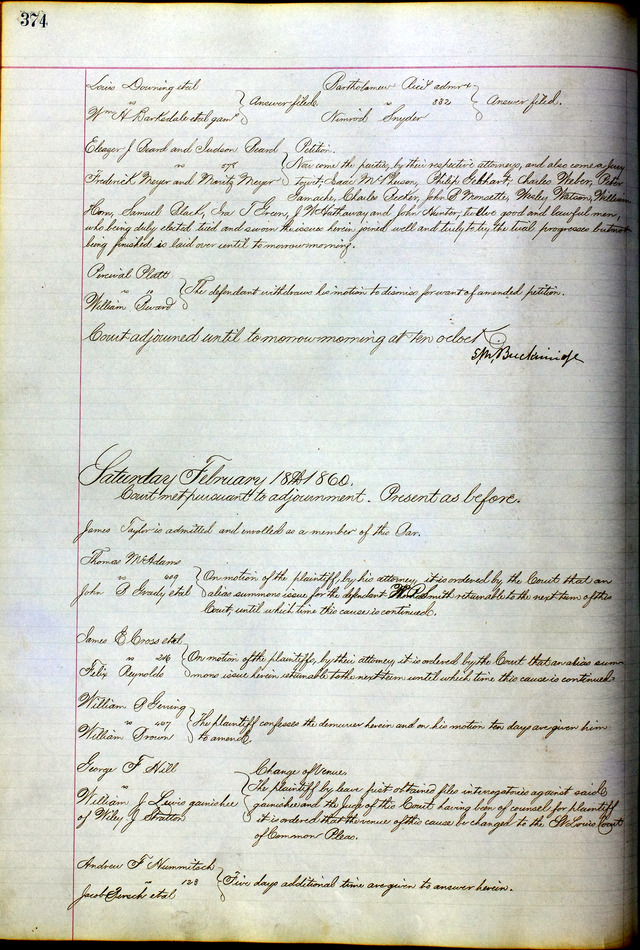 374
Louis Downing etal
vs } Answer filed.
Wm H Barksdale etal garn
Bartholomew Rice admr
vs 332 } Answer filed.
Nimrod Snyder
Eleazer J Beard and Judson Beard } Petition.
vs Now come the parties, by their respective attorneys, and also come a Jury
Frederick Meyer and Moritz Meyer towit; Isaac McPherson, Philip Gebhart, Charles Weber, Peter
Charles Becker, John B Wesley Watson, William
Horn, Samuel Black, Ira T Green, J W Hathaway and John Hunter, twelve good and lawful men,
who being duly elected tried and sworn the issues herein joined well and truly to try, the trial progresses but not
being finished is laid over until tomorrow morning.
Percival Platt
vs } The defendant withdraws his motion to dismiss for want of amended petition.
William
Court adjourned until tomorrow morning at ten oclock
Saturday February 18th 1860.
Court met pursuant to adjournment. Present as before.
James Taylor is admitted and enrolled as a member of this Bar.
Thomas McAdams
vs 409 } On motion of the plaintiff, by his attorney, it is ordered by the Court that an
John B Grady etal alias summons issue for the defendant Smith returnable to the next term of this
Court, until which time this cause is continued.
James E Cross etal
vs 246 } On motion of the plaintiffs, by their attorney it is ordered by the Court that an alias sum-
Felix Reynolds mons issue herein returnable to the next term until which time this cause is continued
William
vs 407 } The plaintiff confesses the demurrer herein and on his motion ten days are given him
William Brown to amend.
George F Hill } Change of Venue.
vs The plaintiff by leave first obtained files interrogatories against said
William J Lewis garnishee garnishee and the Judge of this Court having been of counsel for plaintiff
of Wiley J Stratton it is ordered that the venue of this cause be changed to the St Louis Court
of Common Pleas.
Andrew F Hummitsch
vs 128 } Five days additional time are given to answer herein.
Jacob etal